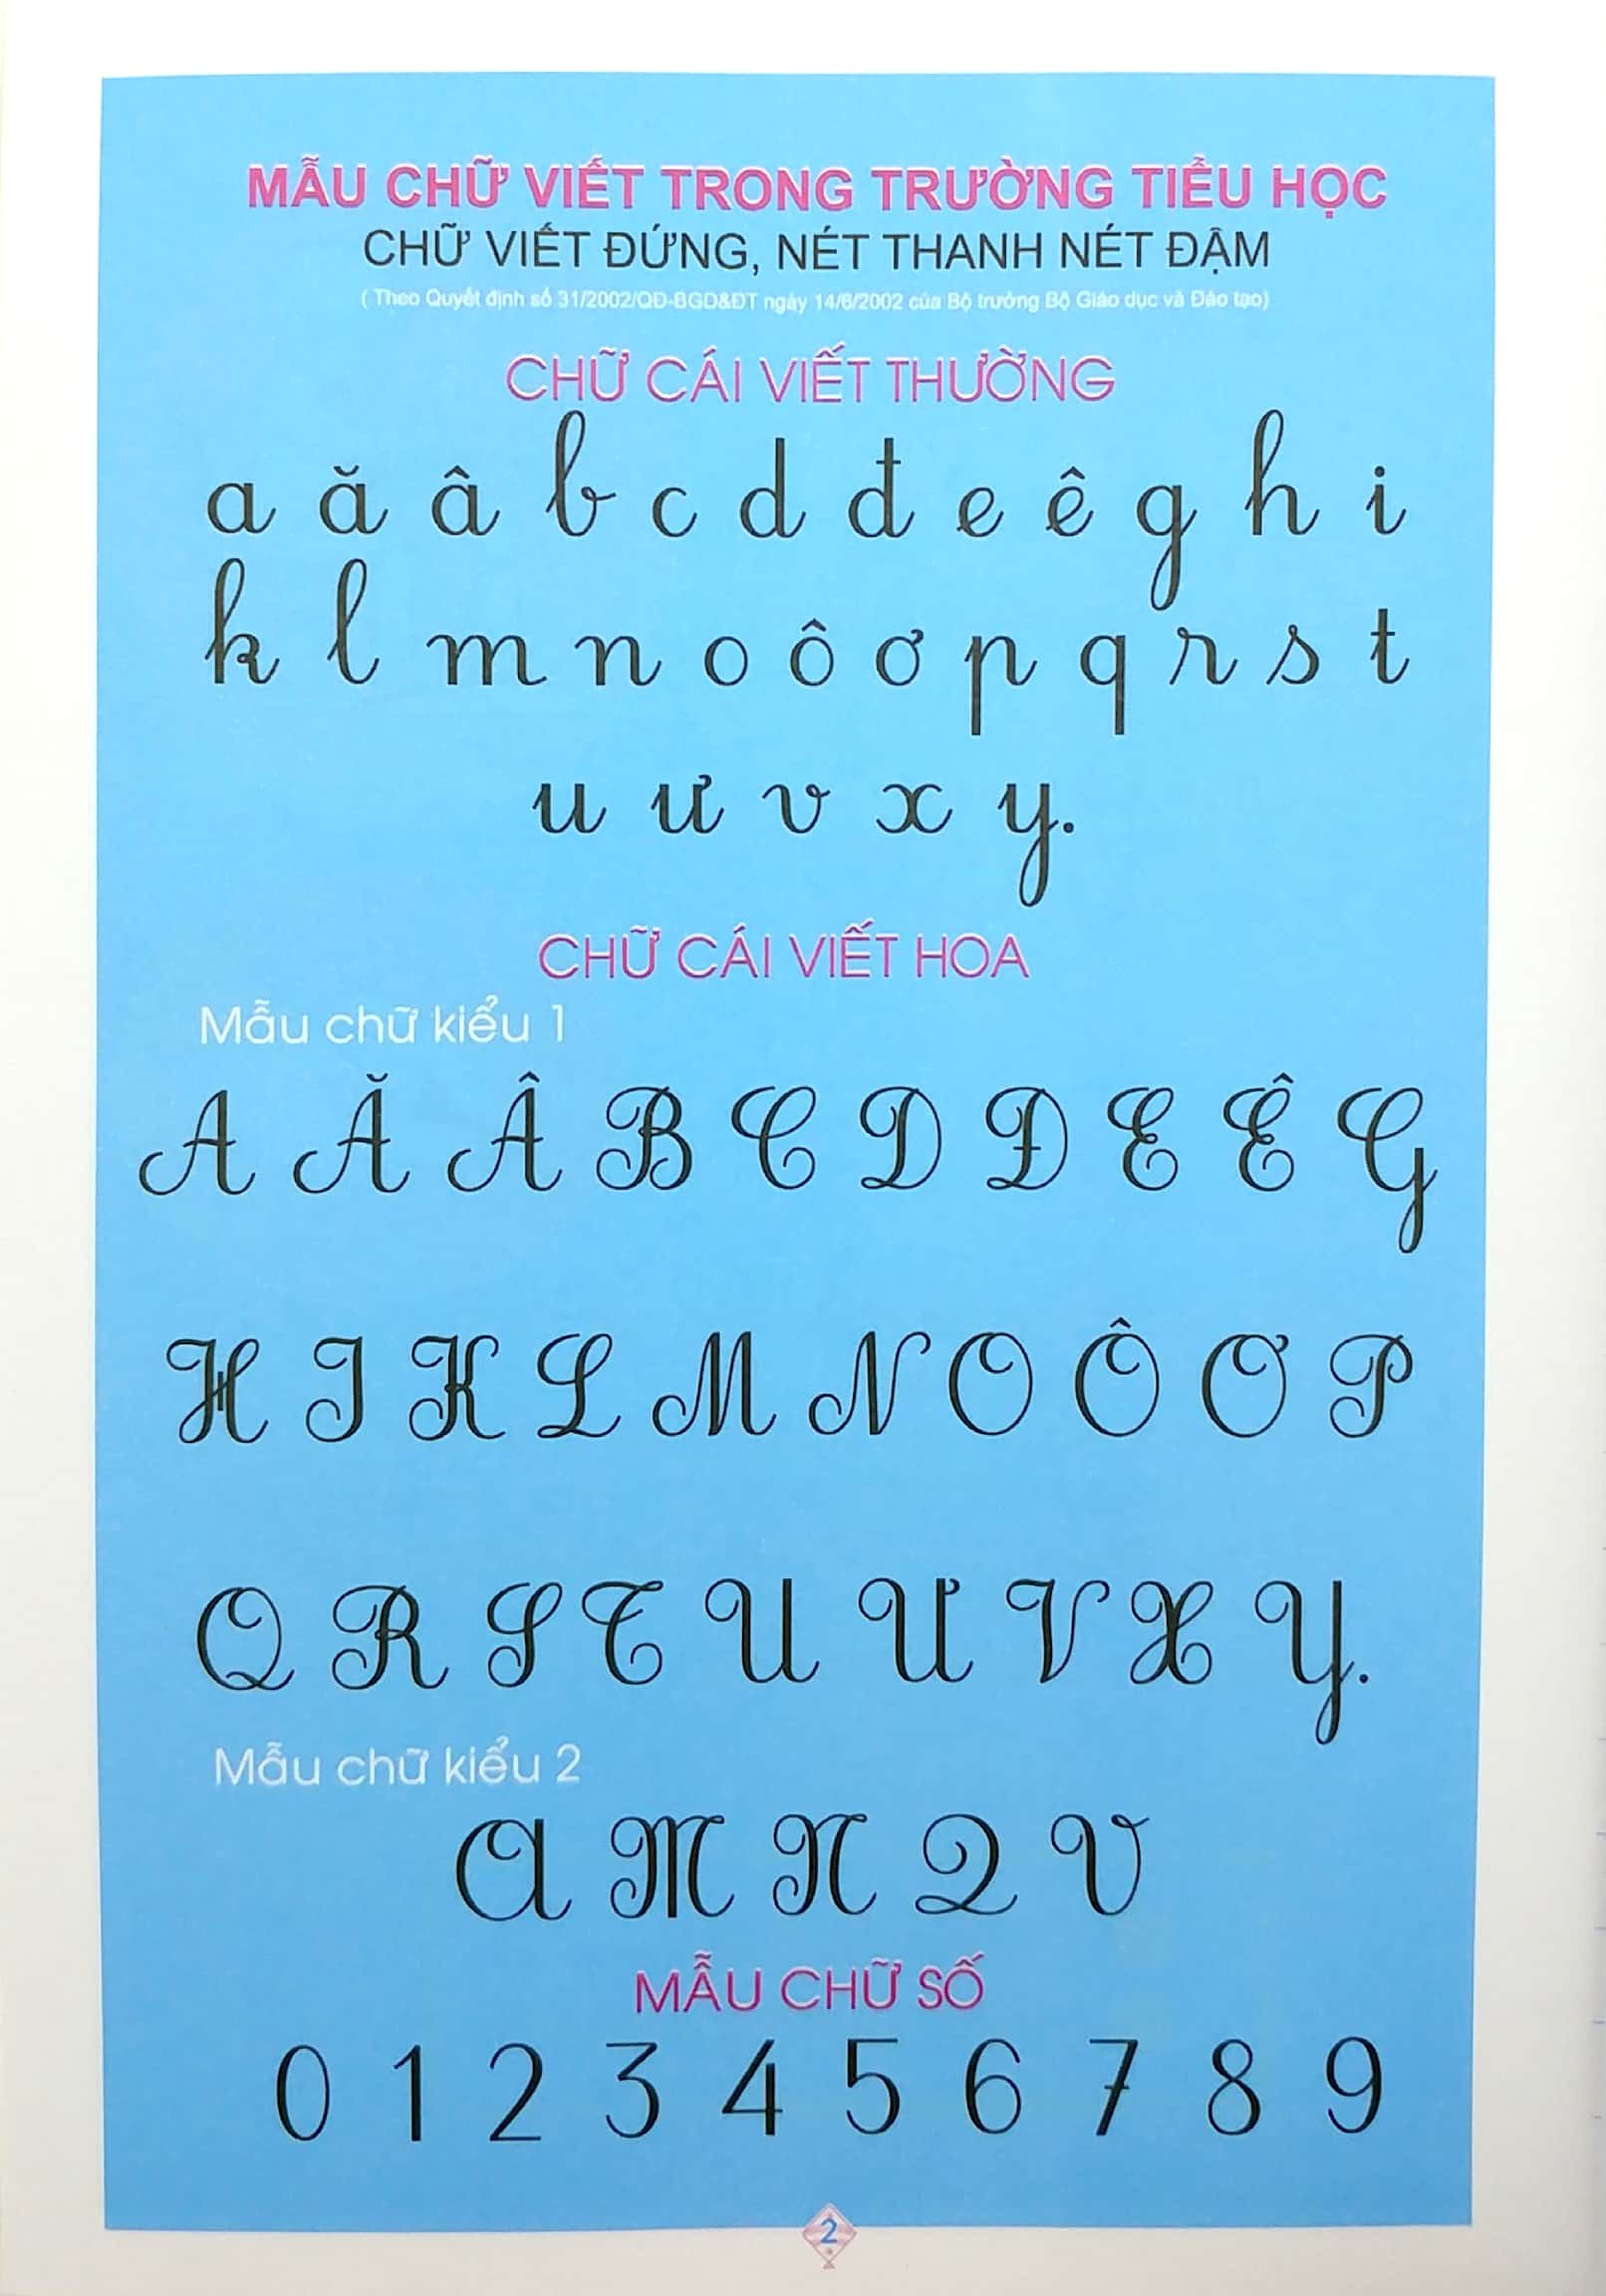 MẪU CHỮ VIẾT TRONG TRƯỜNG TIỂU HỌC
CHỮ VIẾT ĐỨNG, NÉT THANH NÉT ĐẬM
( Theo Quyết định số 31/2002/QĐ-BGD&ĐT ngày 14/6/2002 của Bộ trưởng Bộ Giáo dục và Đào tạo)
CHỮ CÁI VIẾT THƯỜNG
a ă â b c d đ e ê g h i
k l m n o ô ơ p q r s t
u ư v x y.
CHỮ CÁI VIẾT HOA
Mẫu chữ kiểu 1
A Ă Â B C D Đ E Ê G
H I K L M N O Ô Ơ P
Q R S T U Ư V X Y.
Mẫu chữ kiểu 2
A M N Q V
MẪU CHỮ SỐ
0 1 2 3 4 5 6 7 8 9
2